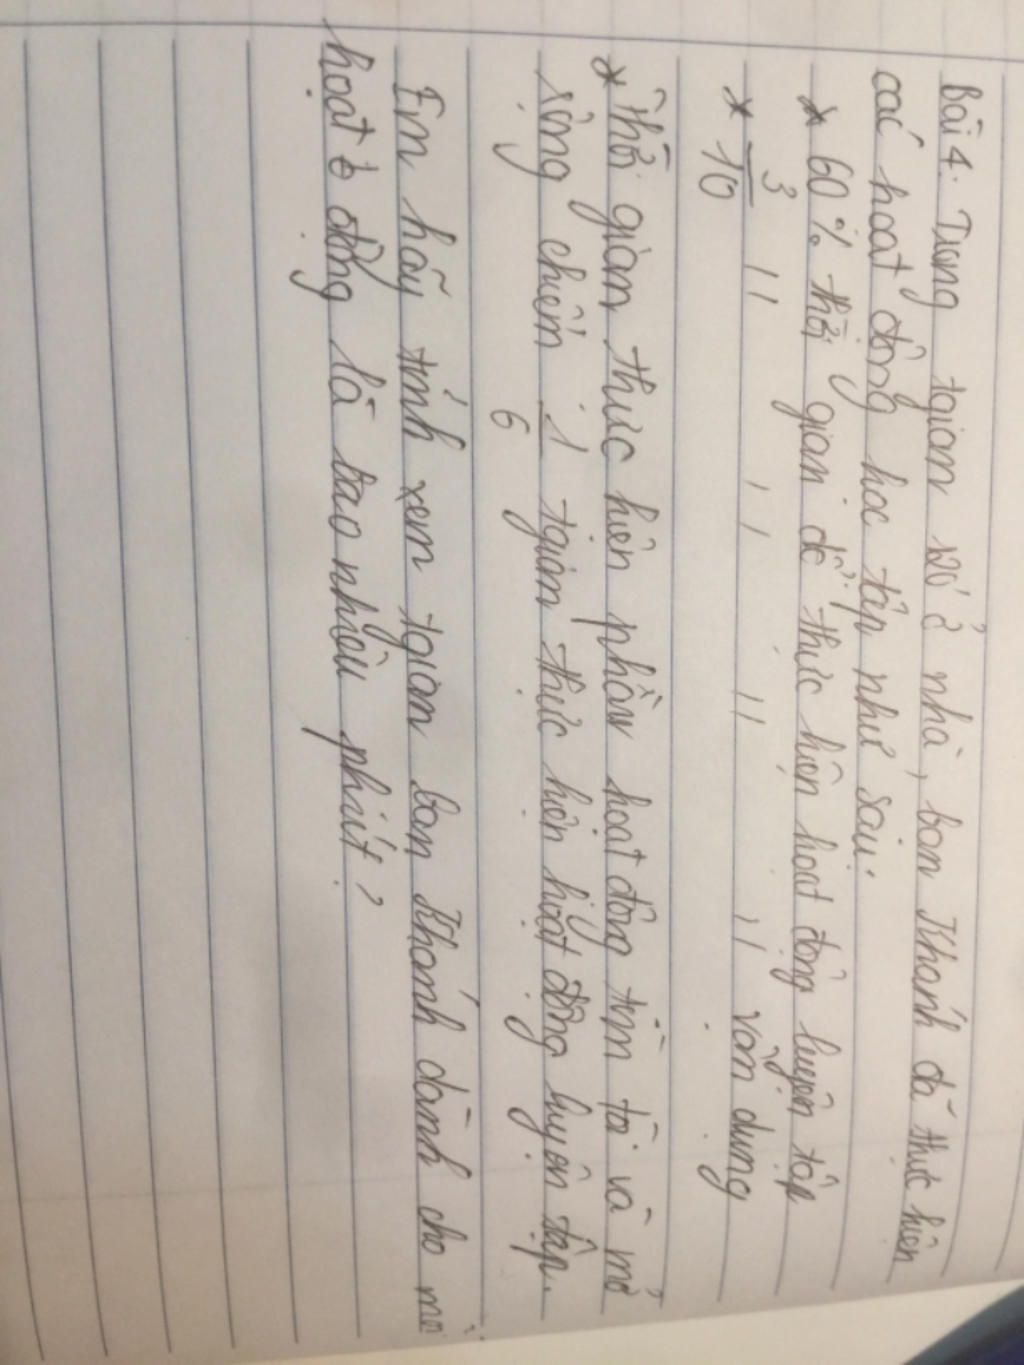 Bài 4. Trong tgian ở nhà, bạn Khánh đã thực hiện
các hoạt động học tập như sau:
* 60% thời gian để thực hiện hoạt động luyện tập
* 3/10 " " " " vận dụng
* Thời gian thực hiện phần hoạt động tìm tòi và mở
rộng chiếm 1/6 tgian thực hiện hoạt động luyện tập.
Em hãy tính xem tgian bạn Khánh dành cho mỗi
hoạt động là bao nhiêu phút?